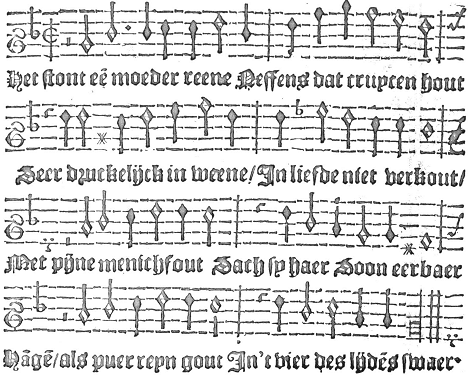 Het stont eẽ moeder reene Neffens dat cruycen hout
Seer druckelijck in weene/ In liefde niet verkout/
Met pijne menichfout Sach sy haer Soon eerbaer
Hãgẽ/als puer reyn gout In't vier des lijdẽs swaer.